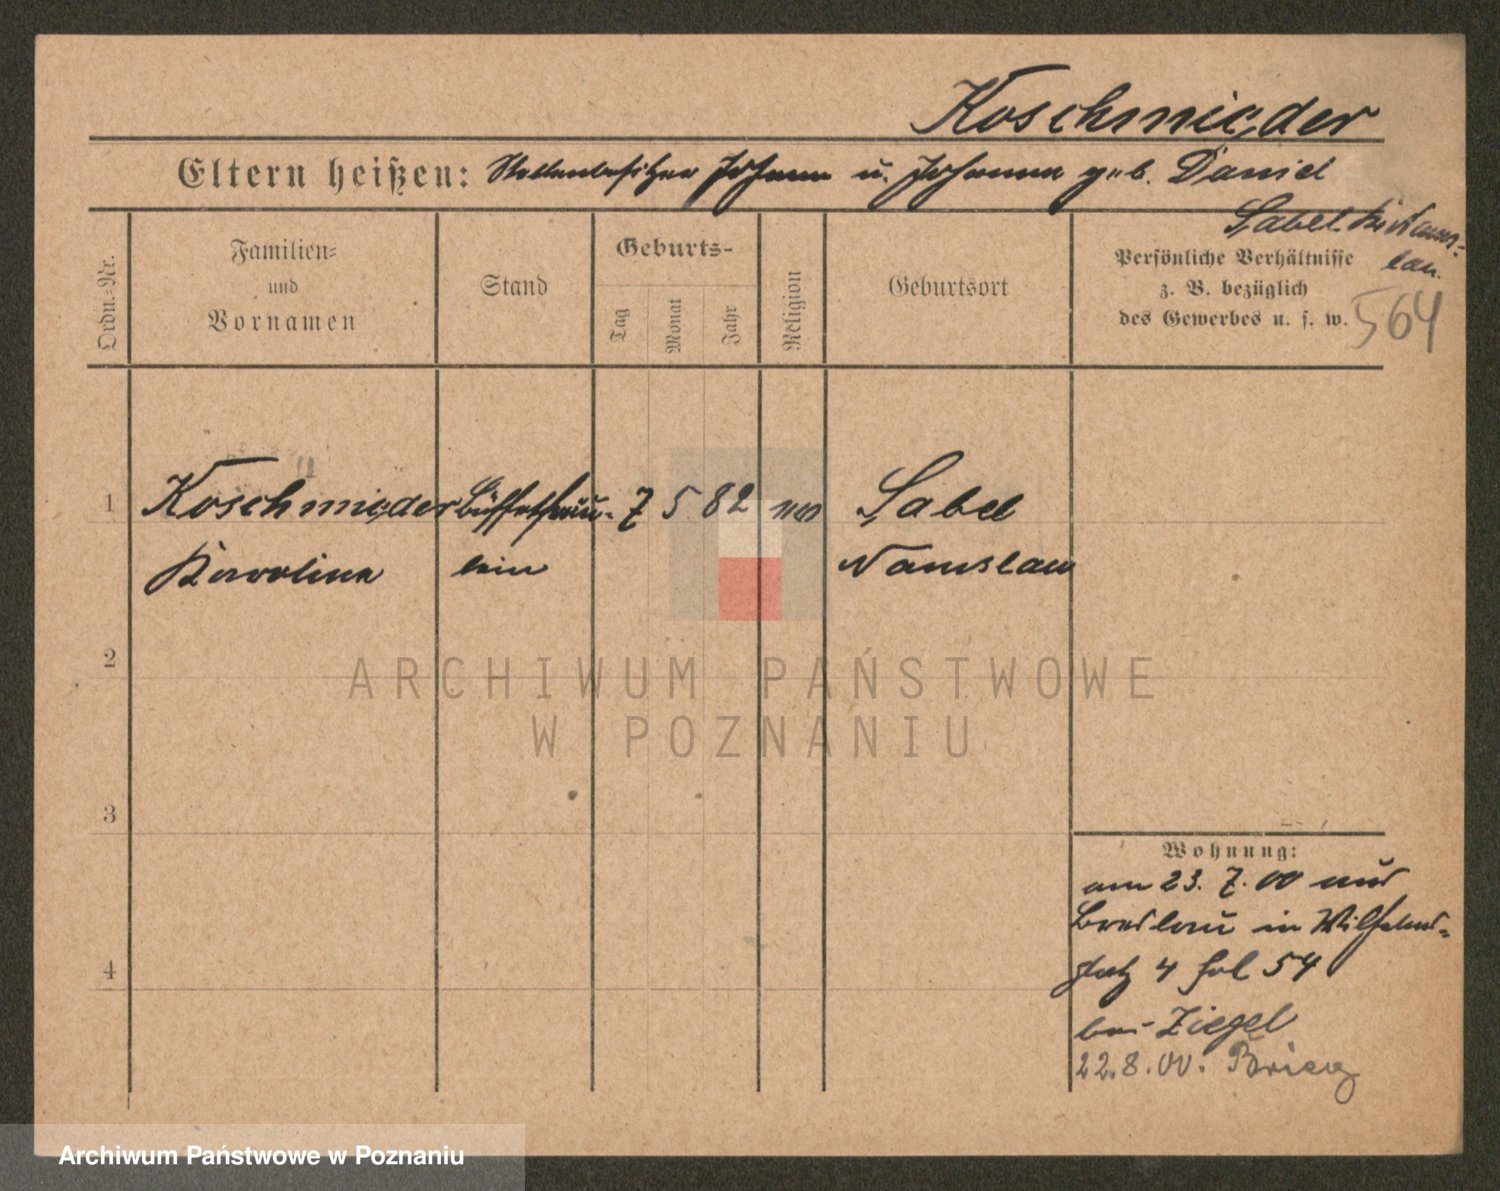 Koschmieder
Eltern heißen: Stellenbesitzer Johann u. Johanna geb. Daniel
Sabel Kr. Nams-
lau.
Ordn.-Nr.
Familien-
und
Vornamen
Stand
Geburts-
Tag
Monat
Jahr
Religion
Geburtsort
Persönliche Verhältnisse
z. B. bezüglich
des Gewerbes u. s. w.
564
1 Koschmieder Büffetfräu- 7 5 82 Sabel
Karoline lein Namslau
2
3
4
Wohnung:
am 23. 7. 00 aus
Breslau in Wilhelms-
platz 4 fol 54
bei Ziegel
22. 8. 00. Brieg
ARCHIWUM PAŃSTWOWE
W POZNANIU
Archiwum Państwowe w Poznaniu